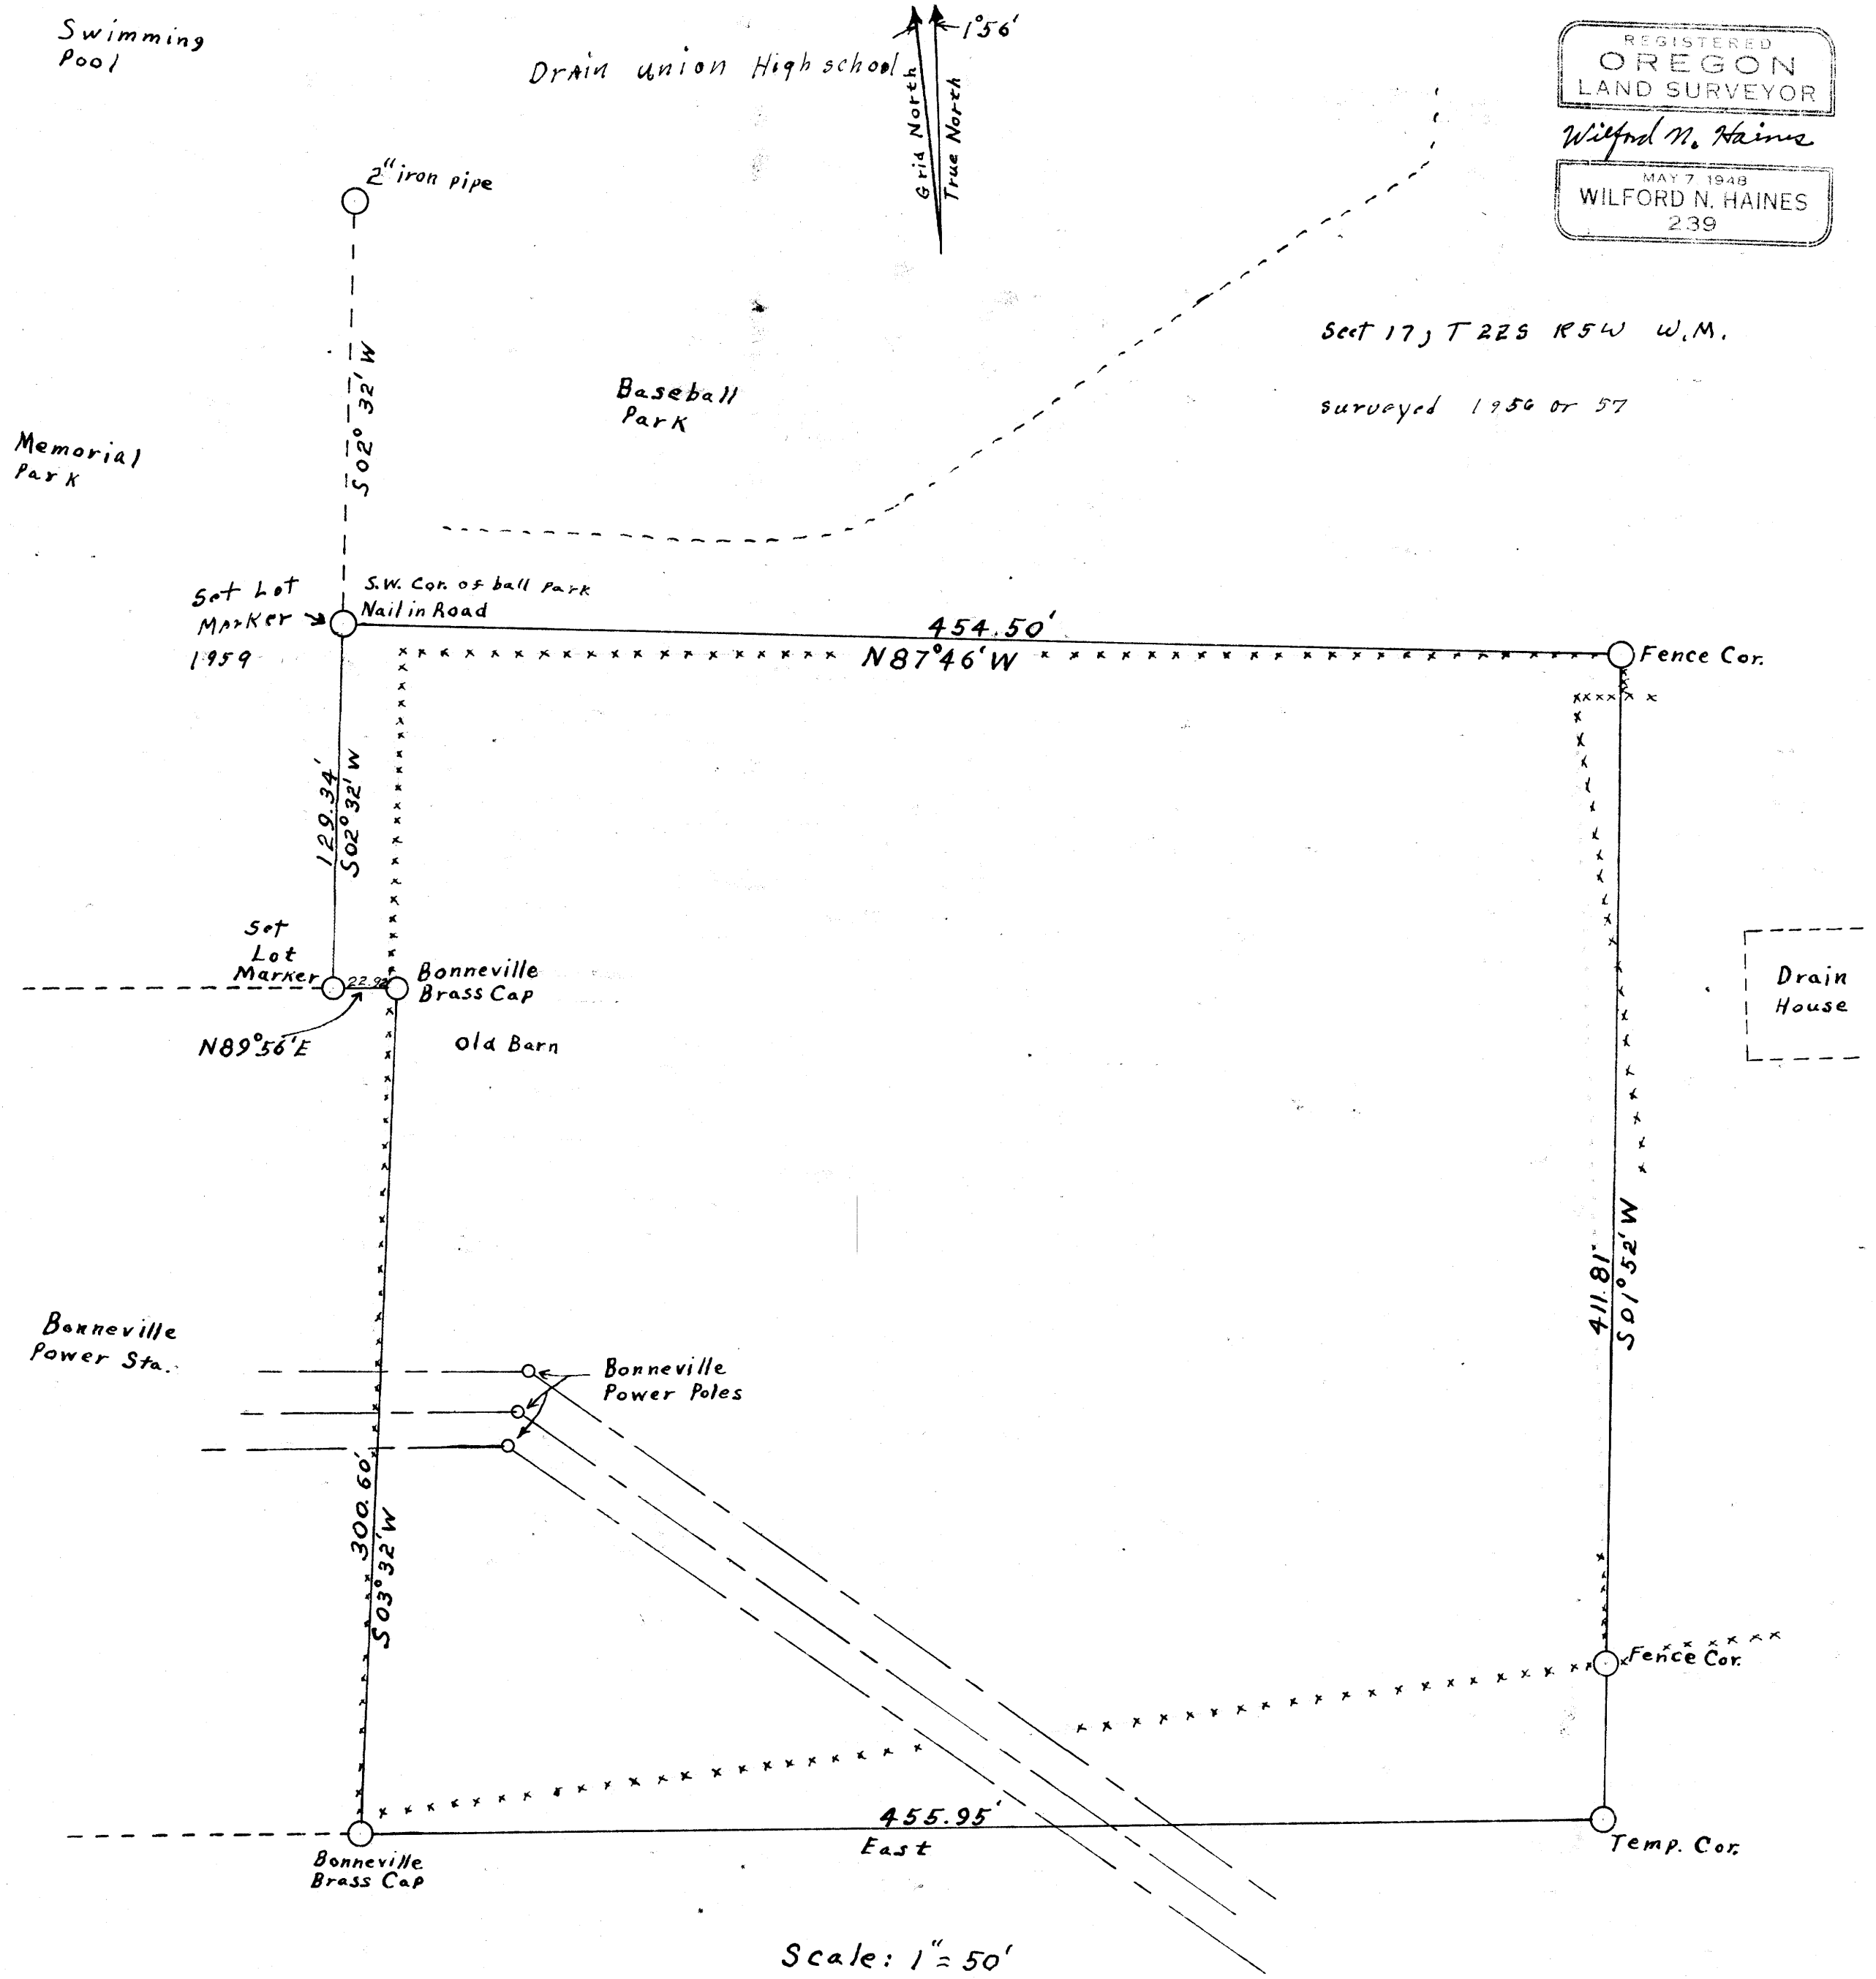 Swimming
Pool
Drain union High school
Grid North
True North
1°56'
REGISTERED
OREGON
LAND SURVEYOR
Wilford N. Haines
MAY 7, 1948
WILFORD N. HAINES
239
2" iron pipe
S02° 32' W
Sect 17, T 22S R5W W.M.
surveyed 1956 or 57
Baseball
Park
Memorial
Park
Set Lot
Marker
1959
S.W. Cor. of ball Park
Nail in Road
454.50'
N87°46'W
Fence Cor.
129.34'
S02°32'W
Set
Lot
Marker
22.92
Bonneville
Brass Cap
N89°56'E
Old Barn
Drain
House
411.81'
S01°52'W
Bonneville
Power Sta.
Bonneville
Power Poles
300.60'
S03°32'W
Fence Cor.
455.95'
East
Temp. Cor.
Bonneville
Brass Cap
Scale: 1" = 50'